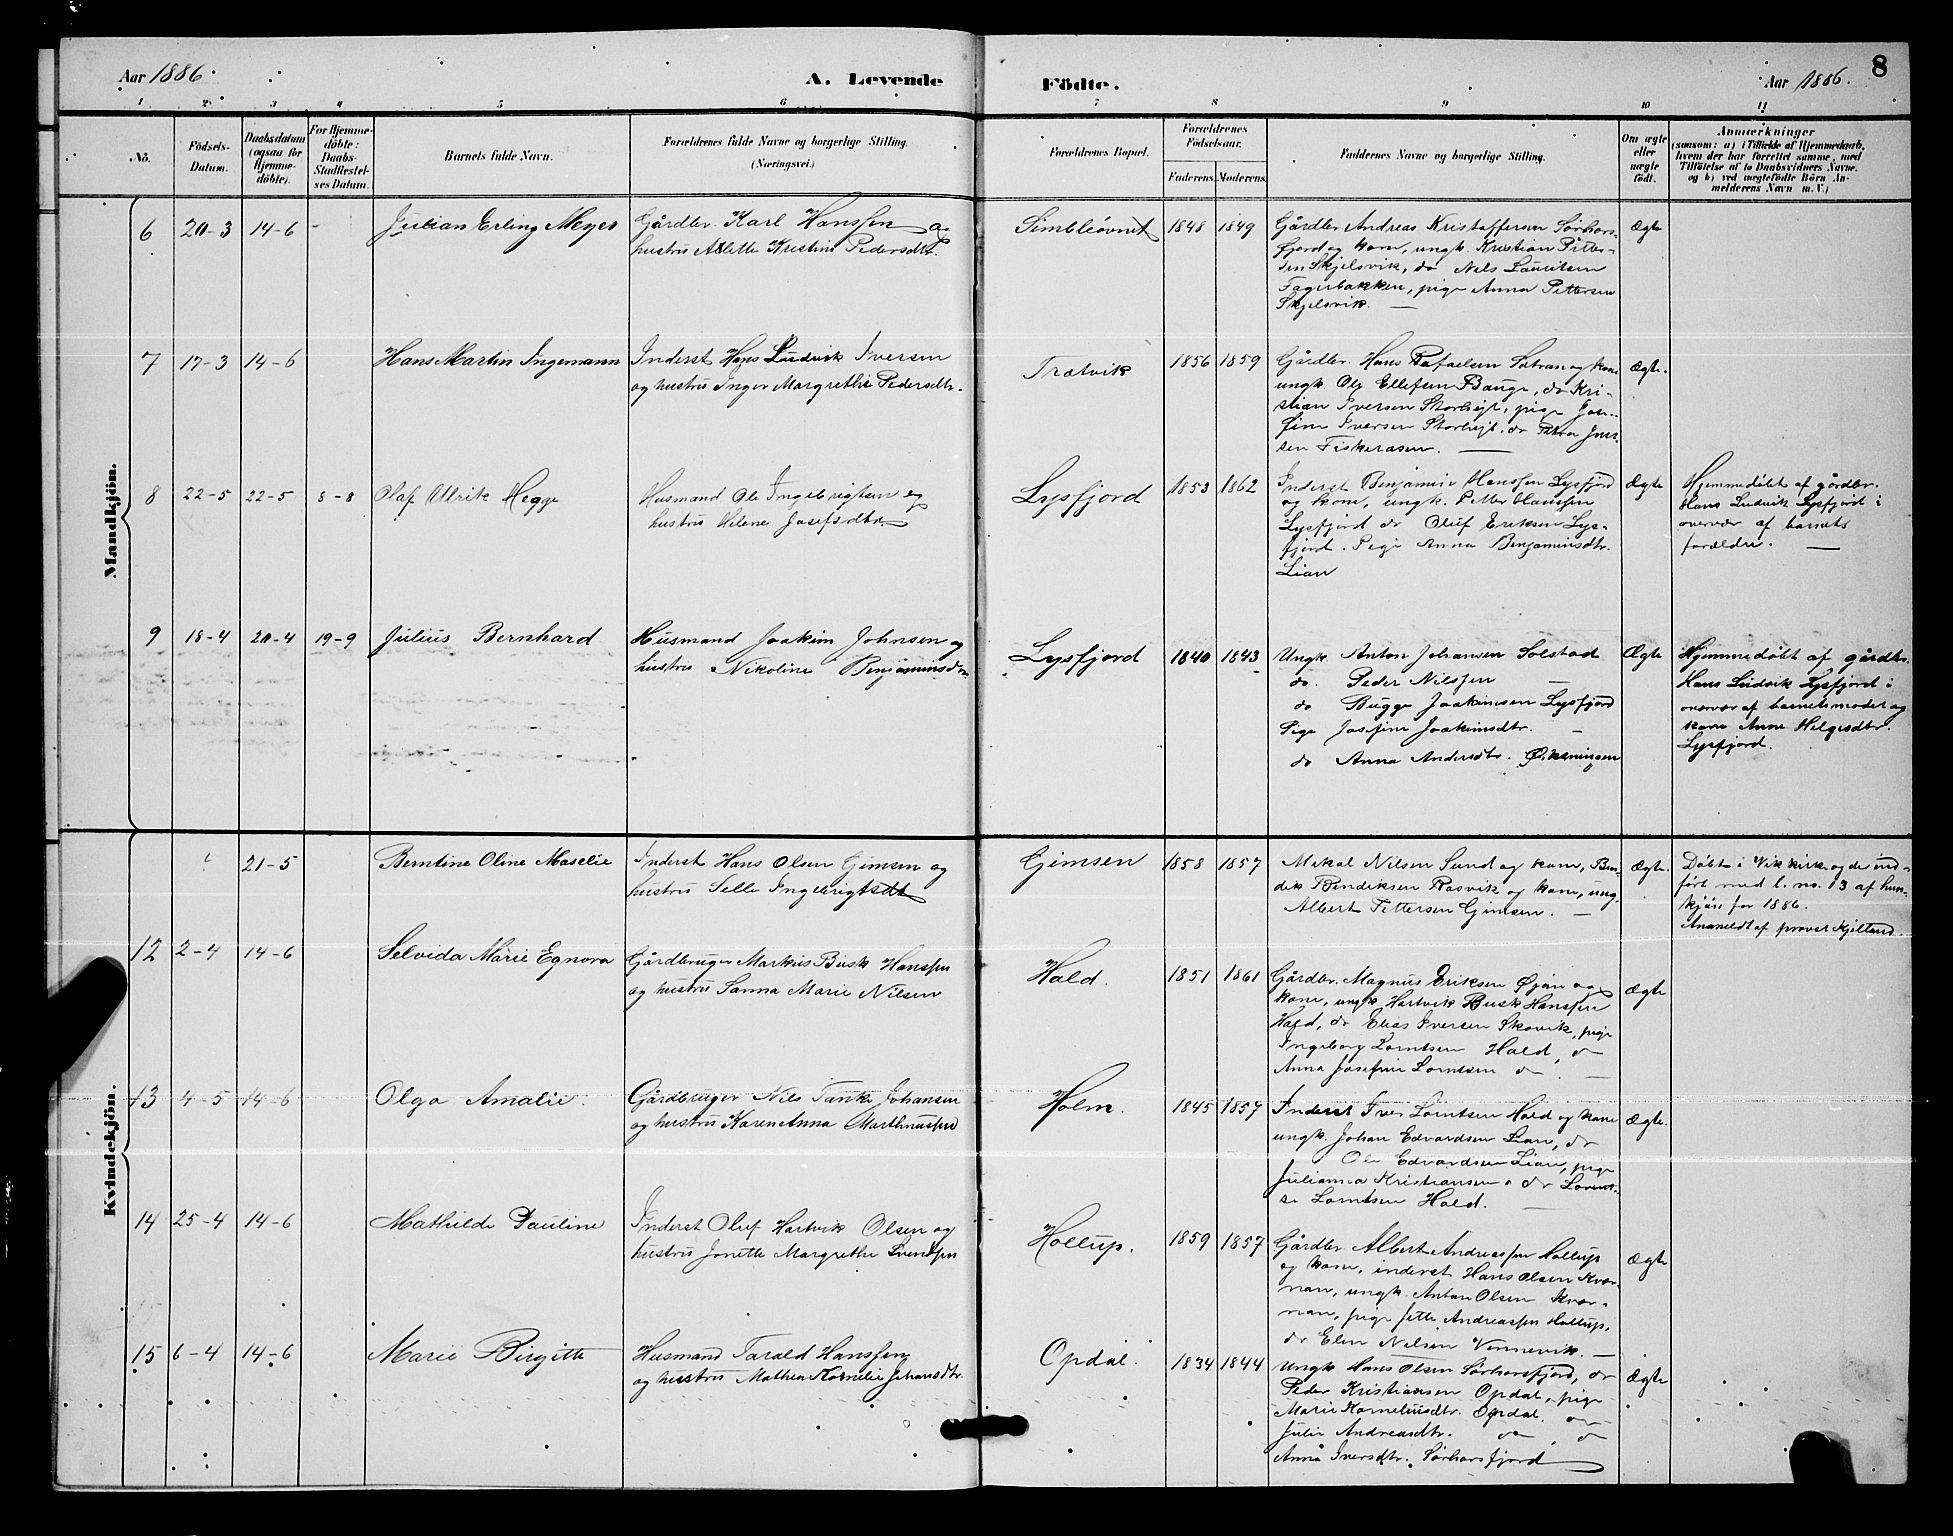 Aar 1886.
A. Levende
Födte.
Aar 1886.
8
1 2 3 4 5 6 7 8 9 10 11
No.
Födsels-
Datum.
Daabsdatum
(ogsaa for
Hjemme-
döbte).
For Hjemme-
döbte:
Daabs-
Stadfæstel-
ses Datum.
Barnets fulde Navn.
Forældrenes fulde Navne og borgerlige Stilling.
(Næringsvei.)
Forældrenes Bopæl.
Forældrenes
Födselsaar.
Faderens.
Moderens.
Faddernes Navne og borgerlige Stilling.
Om ægte
eller
uægte
födt.
Anmærkninger
(saasom: a) i Tilfælde af Hjemmedaab,
hvem der har forrettet samme, med
Tilföielse af to Daabsvidners Navne,
og b) ved uægtefödte Börn An-
melderens Navn m. V.)
Mandkjön.
6 20-3 14-6 -
Julian Erling Meyer
Gårdbr. Karl Hanssen og
hustru Alette Kristine Pedersdtr.
1848 1849
Gårdbr. Andreas Kristoffersen Sørhors-
fjord og kone, ungk. Kristian Petter-
sen Skjelsvik, do Nils Lauritsen
Fagerbakken, pige Anna Pettersen
Skjelsvik.
Ægte
7 17-3 14-6
Hans Martin Ingemann
Inderst Hans Ludvik Iversen
og hustru Inger Margrethe Pedersdtr.
Trætvik
1856 1859
Gårdbr. Hans Rafaelsen Satran og kone
ungk. Ole Ellefsen Bauge, do Kri-
stian Iversen Storhejt, pige Jose-
fine Iversen Storhejt, do Petra
sen Fiskerosen.
Ægte.
8 22-5 22-5 8-8
Olaf Ulrik Hegge
Husmand Ole Ingebrigtsen og
hustru Helene Josefsdtr
Lysfjord
1853 1862
Inderst Benjamin Hanssen Lysfjord
og kone, ungk. Petter Hanssen
Lysfjord do Oluf Eriksen Lys-
fjord. Pige Anna Benjaminsdtr.
Lian
Ægte
Hjemmedöbt af gårdbr.
Hans Ludvik Lysfjord i
overvær af barnets
forældre.
9 18-4 20-4 19-9
Julius Bernhard
Husmand Joakim Johnsen og
hustru Nikoline Benjaminsdtr
Lysfjord
1840 1843
Ungk. Anton Johansen Solstad
do. Peder Nilssen
do Bugge Joakimsen Lysfjord
Pige Josefine Joakimsdtr.
do Anna Andersdtr. Øksningen
Ægte
Hjemmedöbt af gårdbr.
Hans Ludvik Lysfjord i
overvær af barnets moder og
kone Anne Helgesdtr.
Lysfjord.
Kvindekjön.
21-5
Berntine Oline Maselie
Inderst Hans Olsen Gimsen og
hustru Selle Ingebrigtsdt
Gimsen
1858 1857
Mikal Nilsen Sund og kone, Ben-
dik Bendiksen Rasvik og kone, ung.
Albert Pettersen Gimsen.
Ægte.
Döbt i Vik kirke og der ind-
fört med l. no. 13 af kvin-
kjön for 1886.
Anmeldt af provst Kjelland.
12 2-4 14-6
Selvida Marie Egnora
Gårdbruger Markus Busk Hanssen
og hustru Sanna Marie Nilsen
Hald.
1851 1861
Gårdbr. Magnus Eriksen Øjan og
kone, ungk. Hartvik Busk Hanssen
Hald, do Elias Iversen Skavik, pige
Ingeborg Lorntsen Hald, do
Anna Josefine Lorntsen do
Ægte
13 4-5 14-6
Olga Amalie.
Gårdbruger Nils Tanke Johansen
og hustru Karen Anna Marthinussen
Holm.
1845 1857
Inderst Iver Lorntsen Hald og kone
ungk. Johan Edvardsen Lian, do
Ole Edvardsen Lian, pige
Julianna Kristiansen, do Lorent-
se Lorntsen Hald.
Ægte.
14 25-4 14-6
Mathilde Pauline
Inderst Oluf Hartvik Olsen og
hustru Jonette Margrethe Svendsen
Hollup.
1859 1857
Gårdbr. Albert Andreassen Hollup
og kone, inderst Hans Olsen Kvær-
nan, ungk. Anton Olsen Kvær-
nan, pige Jette Andreassen Hollup,
do Elen Nilsen Vennevik.
Ægte
15 6-4 14-6
Marie Birgitte
Husmand Tarald Hanssen
og hustru Mathea Kornelie Johansdtr.
Opdal.
1834 1844
Ungk. Hans Olsen Sørhorsfjord, do
Peder Kristiansen Opdal, pige
Marie Korneliusdtr. Opdal, do
Julie Andreasdtr. do, do
Anna Iversdtr. Sørhorsfjord
Ægte